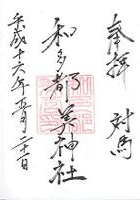 奉拝
対馬
和多都美神社
平成十六年五月二十二日